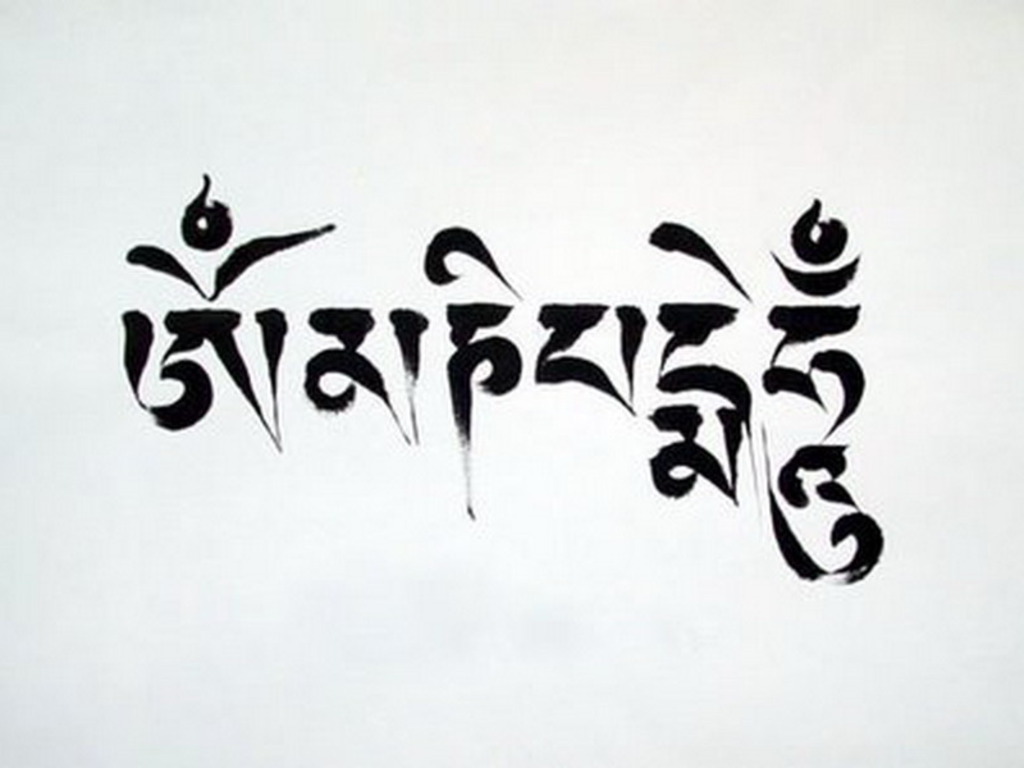 ༀམ་ཎི་པདྨེ་ཧཱུྃ